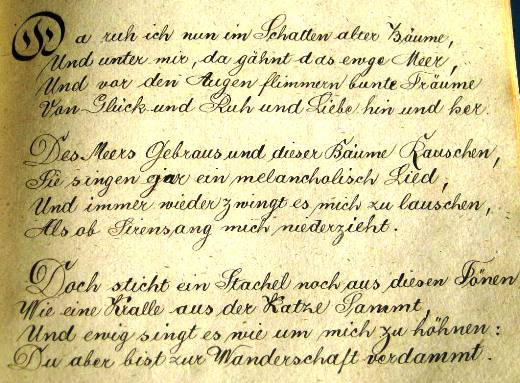 Da ruh ich nun im Schatten alter Bäume,
Und unter mir, da gähnt das ewge Meer,
Und vor den Augen flimmern bunte Träume
Von Glück und Ruh und Liebe hin und her.
Des Meers Gebraus und dieser Bäume Rauschen,
Sie singen gar ein melancholisch Lied,
Und immer wieder zwingt es mich zu lauschen,
Als ob Sirensang mich niederzieht.
Doch sticht ein Stachel noch aus diesen Tönen
Wie eine Kralle aus der Katze Sammt,
Und ewig singt es wie um mich zu höhnen:
Du aber bist zur Wanderschaft verdammt.